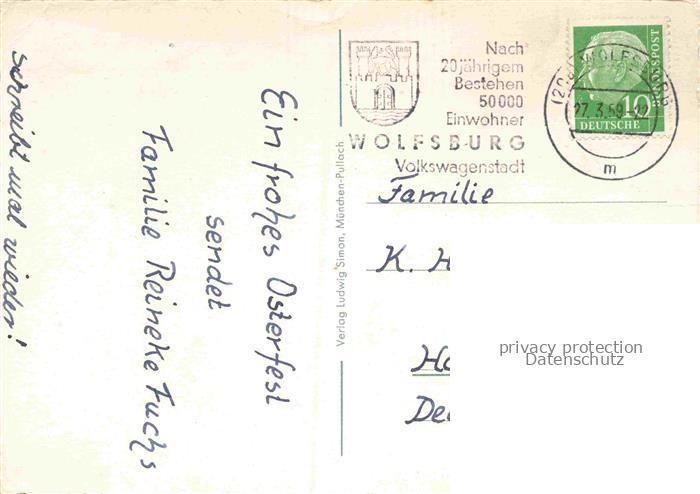 Ein frohes Osterfest
sendet
Familie Reineke Fuchs
schreibt mal wieder!
Verlag Ludwig Simon, München-Pullach
Nach
20jährigem
Bestehen
50000
Einwohner
WOLFSBURG
Volkswagenstadt
WOLFSBURG
27.3.59
m
10
DEUTSCHE
BUNDESPOST
Familie
K. H
privacy protection
Datenschutz